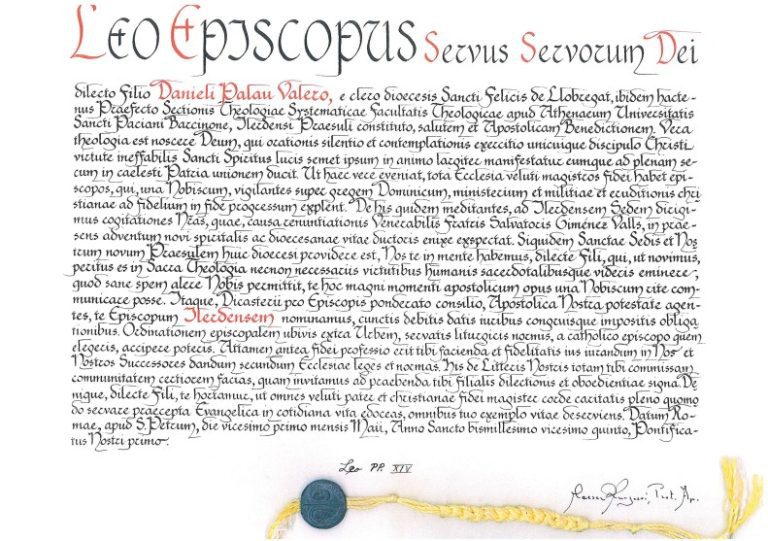 Leo Episcopus Servus Servorum Dei
dilecto Filio Danieli Palau Valero, e clero dioecesis Sancti Felicis de Llobregat, ibidem hacte-
nus Praefecto Sectionis Theologiae Systematicae Facultatis Theologicae apud Athenaeum Universitatis
Sancti Paciani Barcinone, Ilerdensi Praesuli constituto, salutem et Apostolicam Benedictionem. Vera
theologia est noscere Deum, qui orationis silentio et contemplationis exercitio unicuique discipulo Christi
virtute ineffabilis Sancti Spiritus lucis semet ipsum in animo largiter manifestatur eumque ad plenam se-
cum in caelesti Patria unionem ducit. Ut haec vere eveniat, tota Ecclesia veluti magistros fidei habet epi-
scopos, qui, una Nobiscum, vigilantes super gregem Dominicum, ministerium et militiae et eruditionis chri-
stianae ad fidelium in fide progressum explent. De his quidem meditantes, ad Ilerdensem Sedem dirigi-
mus cogitationes Nras, quae, causa renuntiationis Venerabilis Fratris Salvatoris Giménez Valls, in prae-
sens adventum novi spiritalis ac dioecesanae vitae ductoris enixe exspectat. Siquidem Sanctae Sedis et Nos-
trum novum Praesulem huic dioecesi providere est, Nos te in mente habemus, dilecte Fili, qui, ut novimus,
peritus es in Sacra Theologia necnon necessariis virtutibus humanis sacerdotalibusque videris eminere,
quod sane spem alere Nobis permittit, te hoc magni momenti apostolicum opus una Nobiscum rite com-
municare posse. Itaque, Dicasterii pro Episcopis ponderato consilio, Apostolica Nostra potestate agen-
tes, te Episcopum Ilerdensem nominamus, cunctis debitis datis iuribus congruisque impositis obliga
tionibus. Ordinationem episcopalem ubivis extra Urbem, servatis liturgicis normis, a catholico episcopo quem
elegeris, accipere poteris. Attamen antea fidei professio erit tibi facienda et fidelitatis ius iurandum in Nos et
Nostros Successores dandum secundum Ecclesiae leges et normas. His de Litteris Nostris totam tibi commissam
communitatem certiorem facias, quam invitamus ad praebenda tibi filialis dilectionis et oboedientiae signa. De
nique, dilecte Fili, te hortamur, ut omnes veluti pater et christianae fidei magister corde caritatis pleno quomo
do servare praecepta Evangelica in cotidiana vita edoceas, omnibus tuo exemplo vitae deserviens. Datum Ro-
mae, apud S. Petrum, die vicesimo primo mensis Maii, Anno Sancto bismillesimo vicesimo quinto, Pontifica-
tus Nostri primo.
Leo PP. XIV